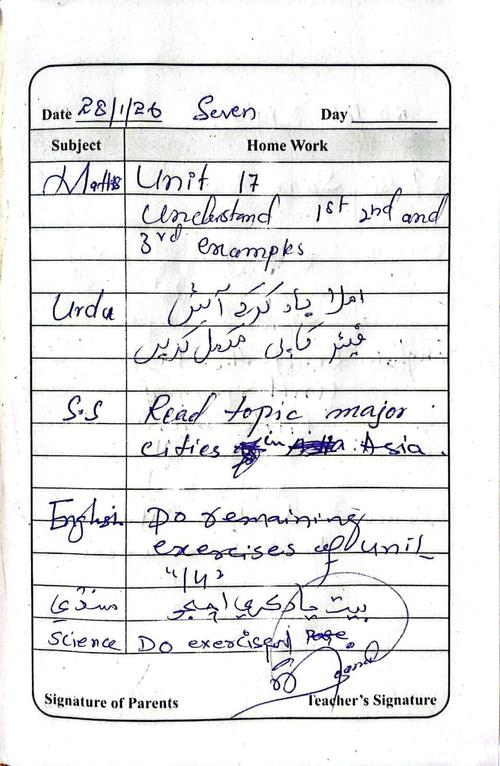 Date 28/1/26 Seven Day
Subject Home Work
Maths Unit 17
Understand 1st 2nd and
3rd examples
Urdu املا یاد کرکے آئیں
فیئر کاپی مکمل کریں
S.S Read topic major
cities in Asia.
English Do remaining
exercises of Unit
"14"
سنڌي بيت ياد ڪري اچجو
Science Do exercise
Signature of Parents Teacher's Signature